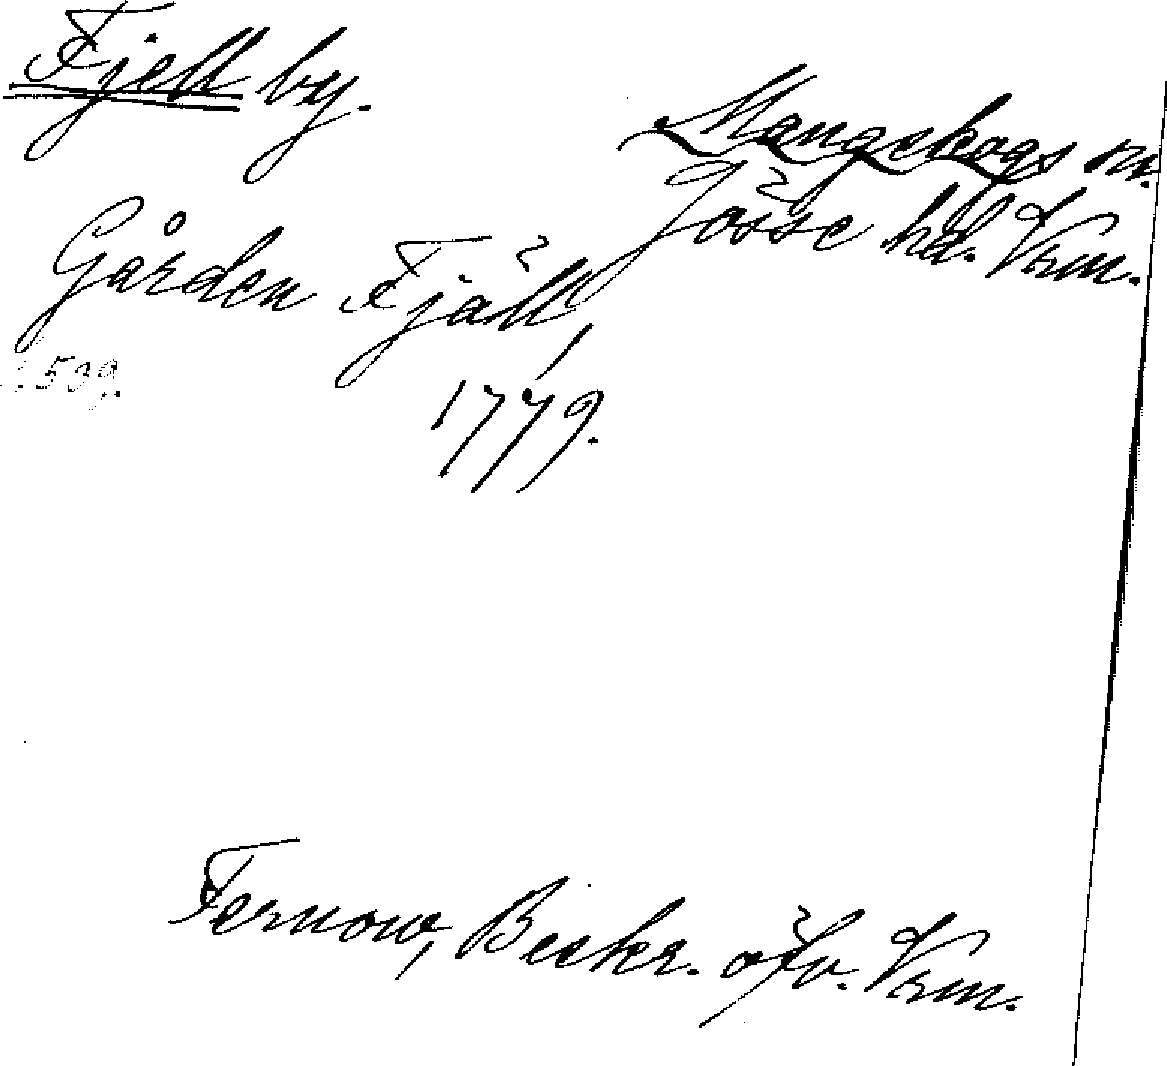 Fjell by.
Mangskogs sn.
Jösse hd. Vrm.
Gården Fjäll,
539.
1779.
Fernow, Beskr. öfv. Vrm.